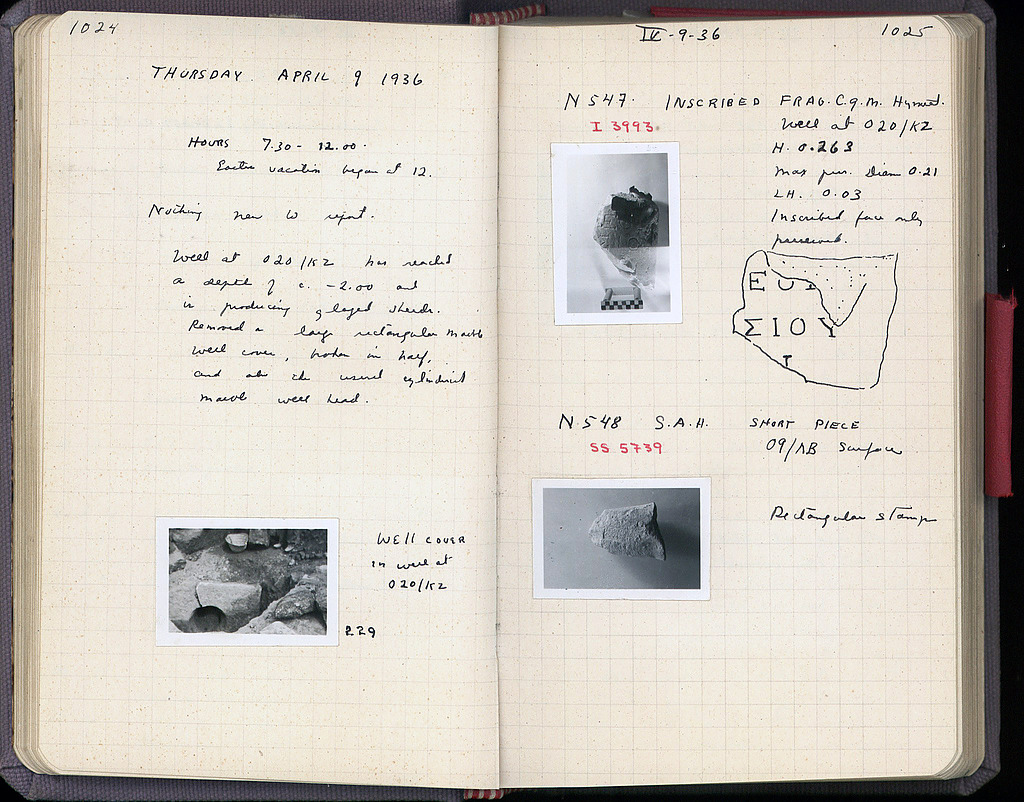 1024
THURSDAY APRIL 9 1936
HOURS 7.30 - 12.00.
Easter vacation began at 12.
Nothing new to report.
Well at O20/KZ has reached
a depth of c. -2.00 and
is producing glazed sherds.
Removed a large rectangular marble
well cover, broken in half,
and also the usual cylindrical
marble well head.
WELL COVER
in well at
O20/KZ
229
IV-9-36
1025
N 547. INSCRIBED FRAG. C.g.m. Hymet.
I 3993.
Well at O20/KZ
H. 0.263
Max pres. Diam 0.21
LH. 0.03
Inscribed face only
preserved.
ΕΥ
ΣΙΟΥ
Τ
N 548 S.A.H. SHORT PIECE
SS 5739
O9/ΛB Surface
Rectangular stamp